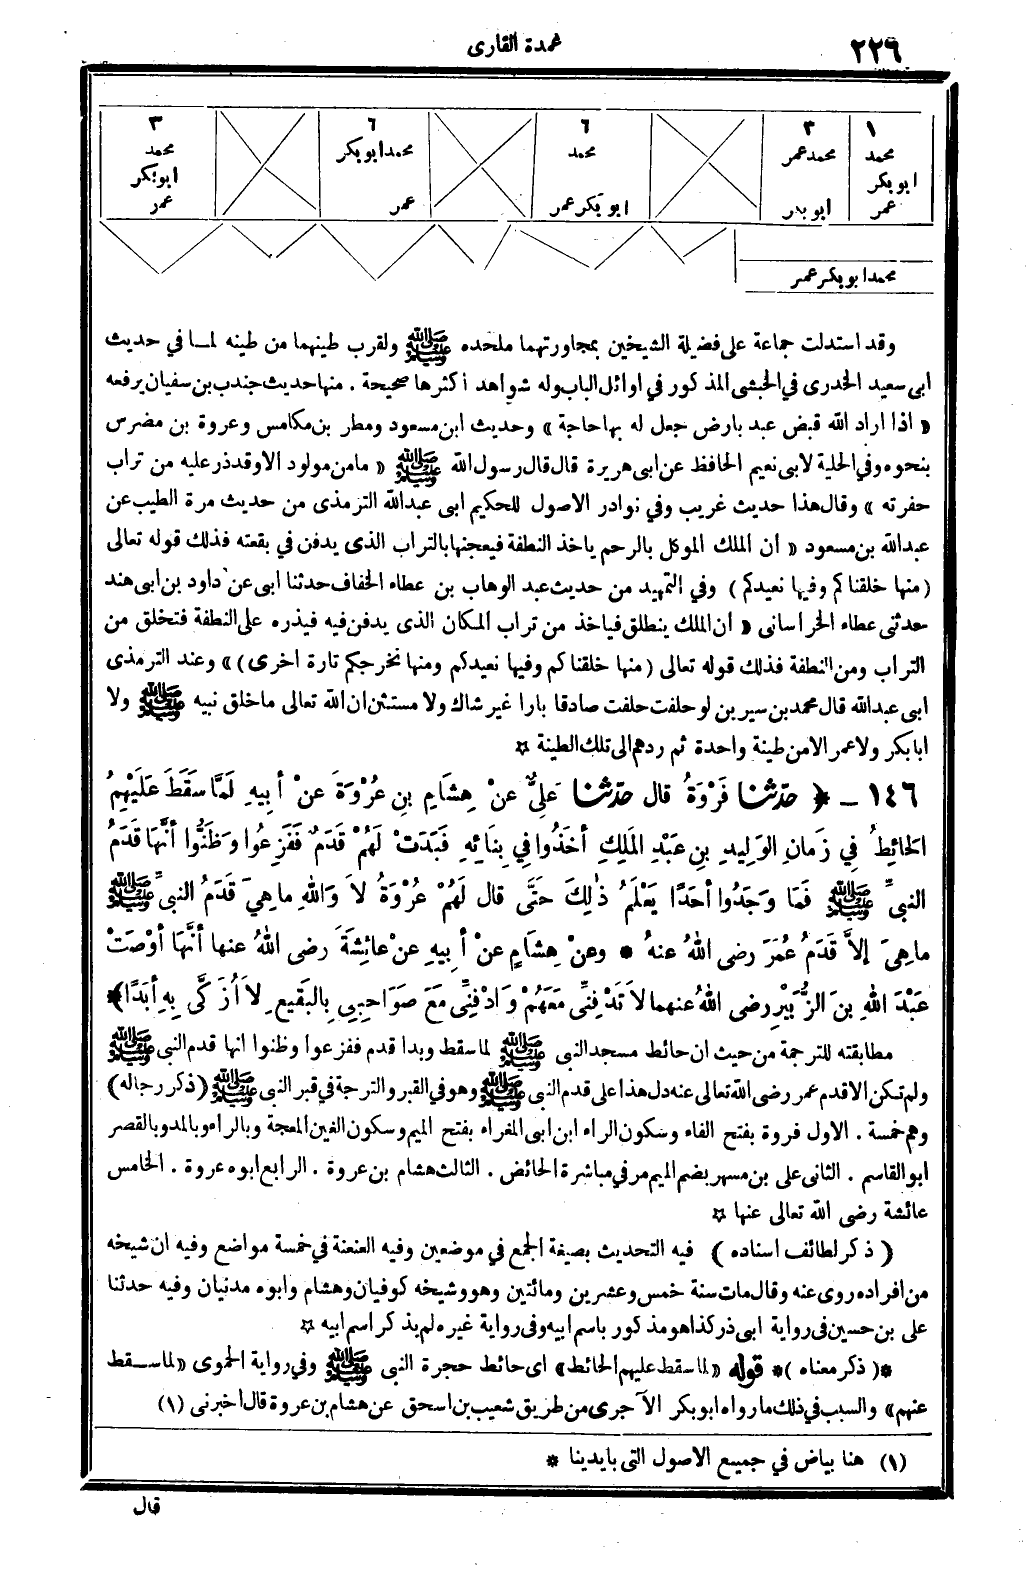 ٢٢٦
عمدة القارى
١
محمد
ابو بكر
عمر
٣
محمد عمر
ابو بدر
٦
محمد
ابو بكر عمر
٦
محمد ابو بكر
عمر
٣
محمد
ابو بكر
عمر
محمد ابو بكر عمر
وقد استدلت جماعة على فضيلة الشيخين بمجاورتهما ملحده ﷺ ولقرب طينهما من طينه لما في حديث
ابى سعيد الخدرى في الحبشى المذكور في اوائل الباب وله شواهد أكثرها صحيحة . منها حديث جندب بن سفيان يرفعه
« اذا اراد الله قبض عبد بارض جعل له بها حاجة » وحديث ابن مسعود ومطر بن مكامس وعروة بن مضرس
بنحوه وفي الحلية لابى نعيم الحافظ عن ابى هريرة قال قال رسول الله ﷺ « ما من مولود الا وقد ذر عليه من تراب
حفرته » وقال هذا حديث غريب وفي نوادر الاصول للحكيم ابى عبدالله الترمذى من حديث مرة الطيب عن
عبدالله بن مسعود « أن الملك الموكل بالرحم ياخذ النطفة فيعجنها بالتراب الذى يدفن في بقعته فذلك قوله تعالى
(منها خلقناكم وفيها نعيدكم) وفي التمهيد من حديث عبد الوهاب بن عطاء الخفاف حدثنا ابى عن داود بن ابى هند
حدثنى عطاء الخراسانى « أن الملك ينطلق فياخذ من تراب المكان الذى يدفن فيه فيذره على النطفة فتخلق من
التراب ومن النطفة فذلك قوله تعالى (منها خلقناكم وفيها نعيدكم ومنها نخرجكم تارة اخرى) » وعند الترمذى
ابى عبدالله قال محمد بن سيرين لو حلفت حلفت صادقا بارا غير شاك ولا مستثن ان الله تعالى ما خلق نبيه ﷺ ولا
ابابكر ولا عمر الا من طينة واحدة ثم ردهم الى تلك الطينة ☆
١٤٦ ـ ﴿ حدّثنا فَرْوَةُ قال حدّثنا عَلِيٌّ عنْ هِشَامِ بنِ عُرْوَةَ عنْ أبيهِ لَمَّا سَقَطَ عَلَيْهِمُ
الحَائِطُ فِي زَمَانِ الوَلِيدِ بنِ عَبْدِ المَلِكِ أخَذُوا فِي بِنَائِهِ فَبَدَتْ لَهُمْ قَدَمٌ فَفَزِعُوا وَظَنُّوا أنَّهَا قَدَمُ
النبيِّ ﷺ فَمَا وَجَدُوا أحَدًا يَعْلَمُ ذٰلِكَ حَتَّى قال لَهُمْ عُرْوَةُ لاَ وَاللهِ ماهِيَ قَدَمُ النبيِّ ﷺ
ماهِيَ إلاَّ قَدَمُ عُمَرَ رضى اللهُ عنهُ * وعنْ هِشَامٍ عنْ أبِيهِ عنْ عائِشَةَ رضى اللهُ عنها أنَّهَا أوْصَتْ
عَبْدَ اللهِ بنَ الزُّبَيْرِ رضى اللهُ عنهما لاَ تَدْفِنِّى مَعَهُمْ وَادْفِنِّى مَعَ صَوَاحِبِى بِالبَقِيعِ لاَ أُزَكَّى بِهِ أبَدًا﴾
مطابقته للترجمة من حيث ان حائط مسجد النبى ﷺ لما سقط وبدا قدم ففزعوا وظنوا انها قدم النبى ﷺ
ولم تكن الا قدم عمر رضى الله تعالى عنه دل هذا على قدم النبى ﷺ وهو في القبر والترجمة في قبر النبى ﷺ (ذكر رجاله)
وهم خمسة . الاول فروة بفتح الفاء وسكون الراء ابن ابى المغراء بفتح الميم وسكون الغين المعجمة وبالراء وبالمد وبالقصر
ابو القاسم . الثانى على بن مسهر بضم الميم مر في مباشرة الحائض . الثالث هشام بن عروة . الرابع ابوه عروة . الخامس
عائشة رضى الله تعالى عنها ☆
( ذكر لطائف اسناده ) فيه التحديث بصيغة الجمع في موضعين وفيه العنعنة في خمسة مواضع وفيه ان شيخه
من افراده روى عنه وقال مات سنة خمس وعشرين ومائتين وهو وشيخه كوفيان وهشام وابوه مدنيان وفيه حدثنا
على بن حسين فى رواية ابى ذر كذا هو مذكور باسم ابيه وفى رواية غيره لم يذكر اسم ابيه ☆
*( ذكر معناه )* قوله « لما سقط عليهم الحائط » اى حائط حجرة النبى ﷺ وفي رواية الحموى « لما سقط
عنهم » والسبب في ذلك ما رواه ابو بكر الآجرى من طريق شعيب بن اسحق عن هشام بن عروة قال اخبرنى (١)
(١) هنا بياض في جميع الاصول التى بايدينا *
قال